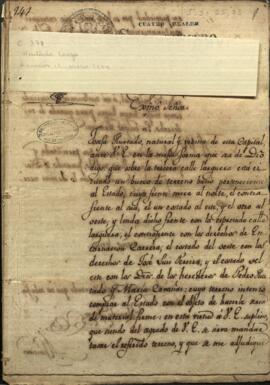 241
CUATRO REALES
C. 378
Exmo Señor
José Hurtado, natural y vecino de esta Capital
ante V.E. en la mejor forma que sea de Dro
digo: que sobre la tercera calle larguera está ci
tuado un hueco de terreno baldio perteneciente
al Estado, cuyo frente mira al norte, el contra
frente al sud, el un costado al este, y el otro al
oeste; y linda, dicho frente con la espresada calle
larguera, el contrafrente con los derechos de En
carnacion Carrera, el costado del oeste con los
derechos de José Luis Riveira, y el costado del
este con los Dros. de los herederos de Pedro
y Maria cuyo terreno intento
comprar al Estado con el objeto de hacerle casa
de material firme: en esta virtud á V.E. suplico,
que siendo del agrado de V.E. se sirva mandar
tasar el referido terreno, y que se me adjudique